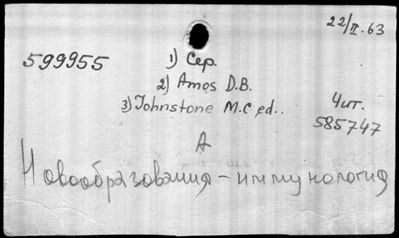 22/II.63
599955
1) Сер.
2) Amos D.B.
3) Johnstone M.C. ed..
Чит.
585747
А
Новообразования - иммунология